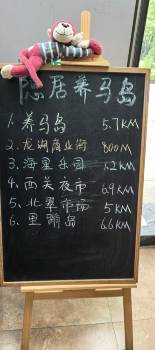 隐居养马岛
1. 养马岛 5.7KM
2. 龙湖商业街 800M
3. 海星乐园 1.2KM
4. 西关夜市 6.9KM
5. 北翠市场 5KM
6. 里蹦岛 6.6KM